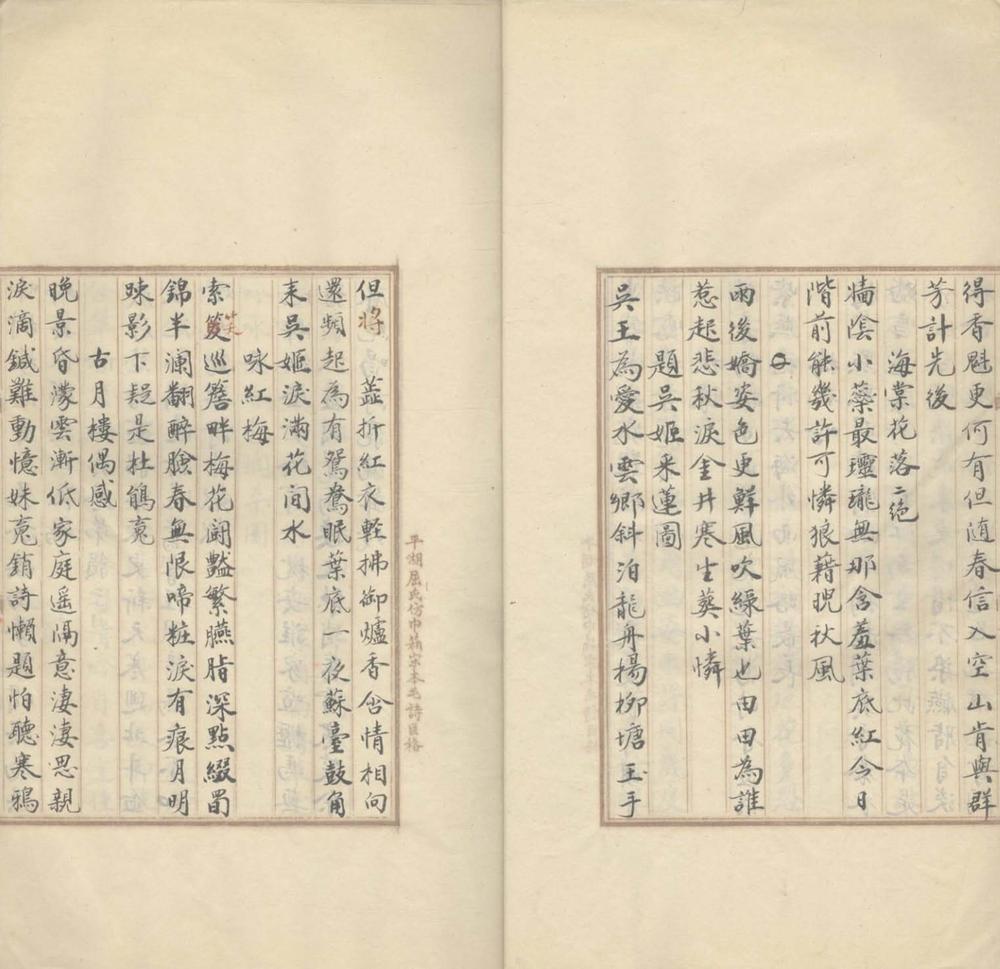 得香魁更何有但随春信入空山肯與群
芳計先後
海棠花落二絕
墻陰小蘂最瓏瓏無那含羞葉底紅今日
階前能幾許可憐狼籍睨秋風
雨後嬌姿色更鮮風吹綠葉也田田為誰
惹起悲秋淚金井寒生葵小憐
題吳姬采蓮圖
吳王為愛水雲鄉斜泊龍舟楊柳塘玉手
平湖屈氏仿巾箱宋本毛詩匡格
但將蓝折紅衣輕拂御爐香含情相向
還頻起為有鴛鴦眠葉底一夜蘇臺鼓角
来吳姬淚滿花間水
咏紅梅
索笑巡簷畔梅花鬭豔繁臙脂深點綴蜀
錦半瀾翻醉臉春無限啼粧淚有痕月明
踈影下疑是杜鵑䰟
古月樓偶感
晚景昏濛雲漸低家庭遥隔意淒淒思親
淚滴鍼難動憶妹䰟銷詩懶題怕聽寒鴉